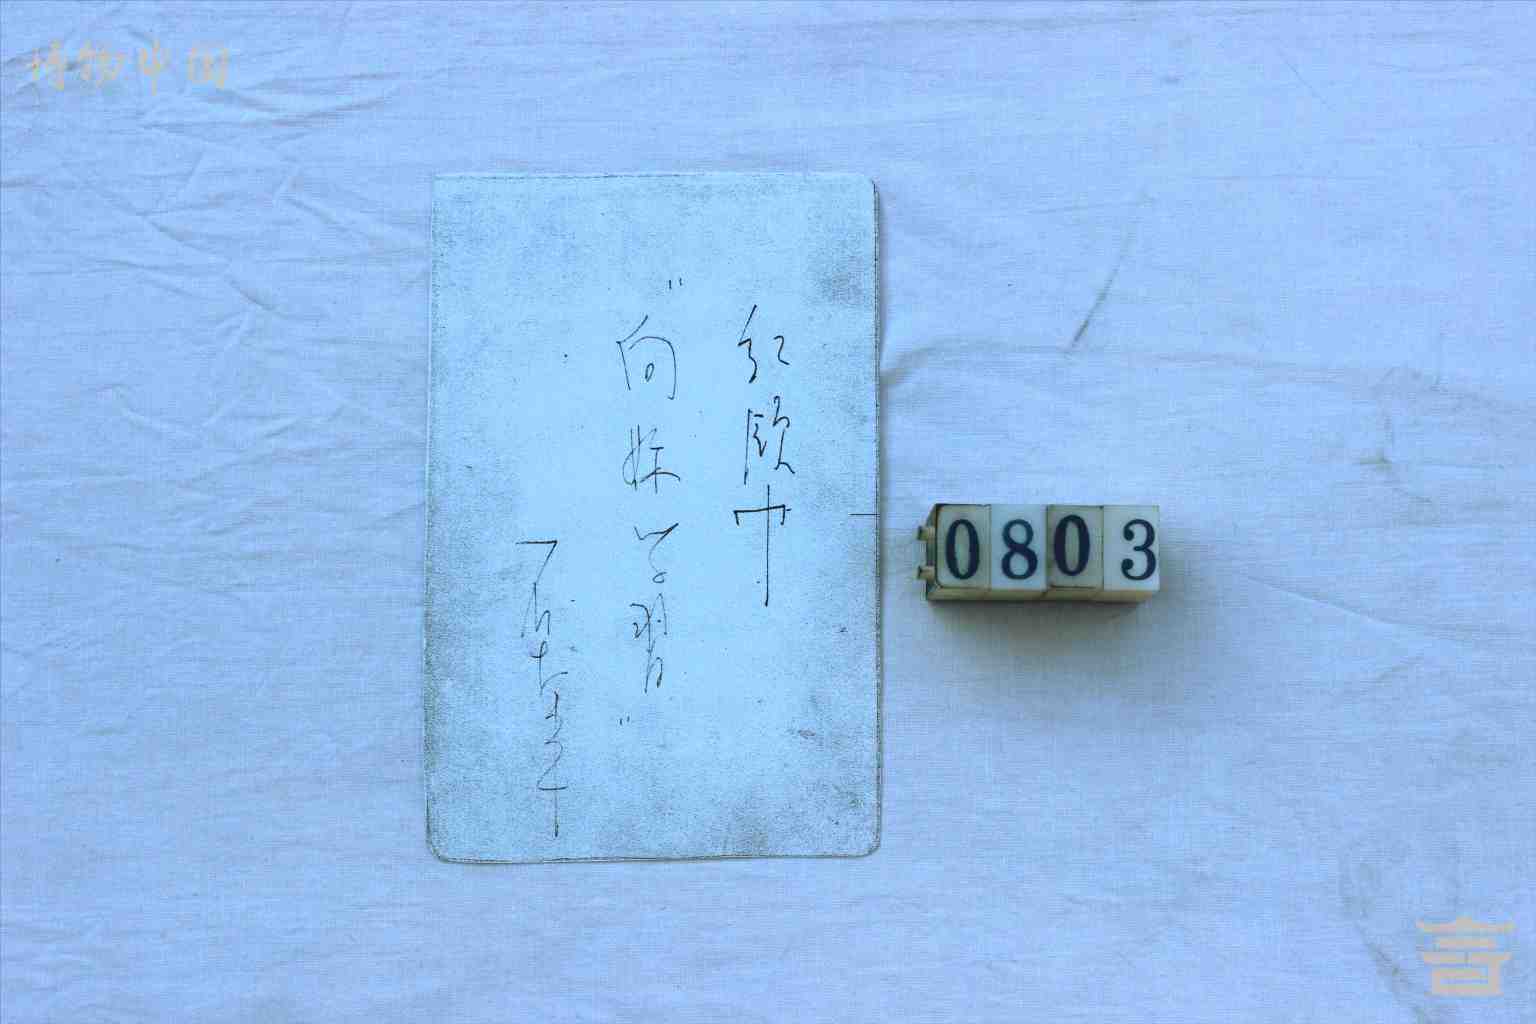 博物中国
红领巾
"向妹学习"
0803